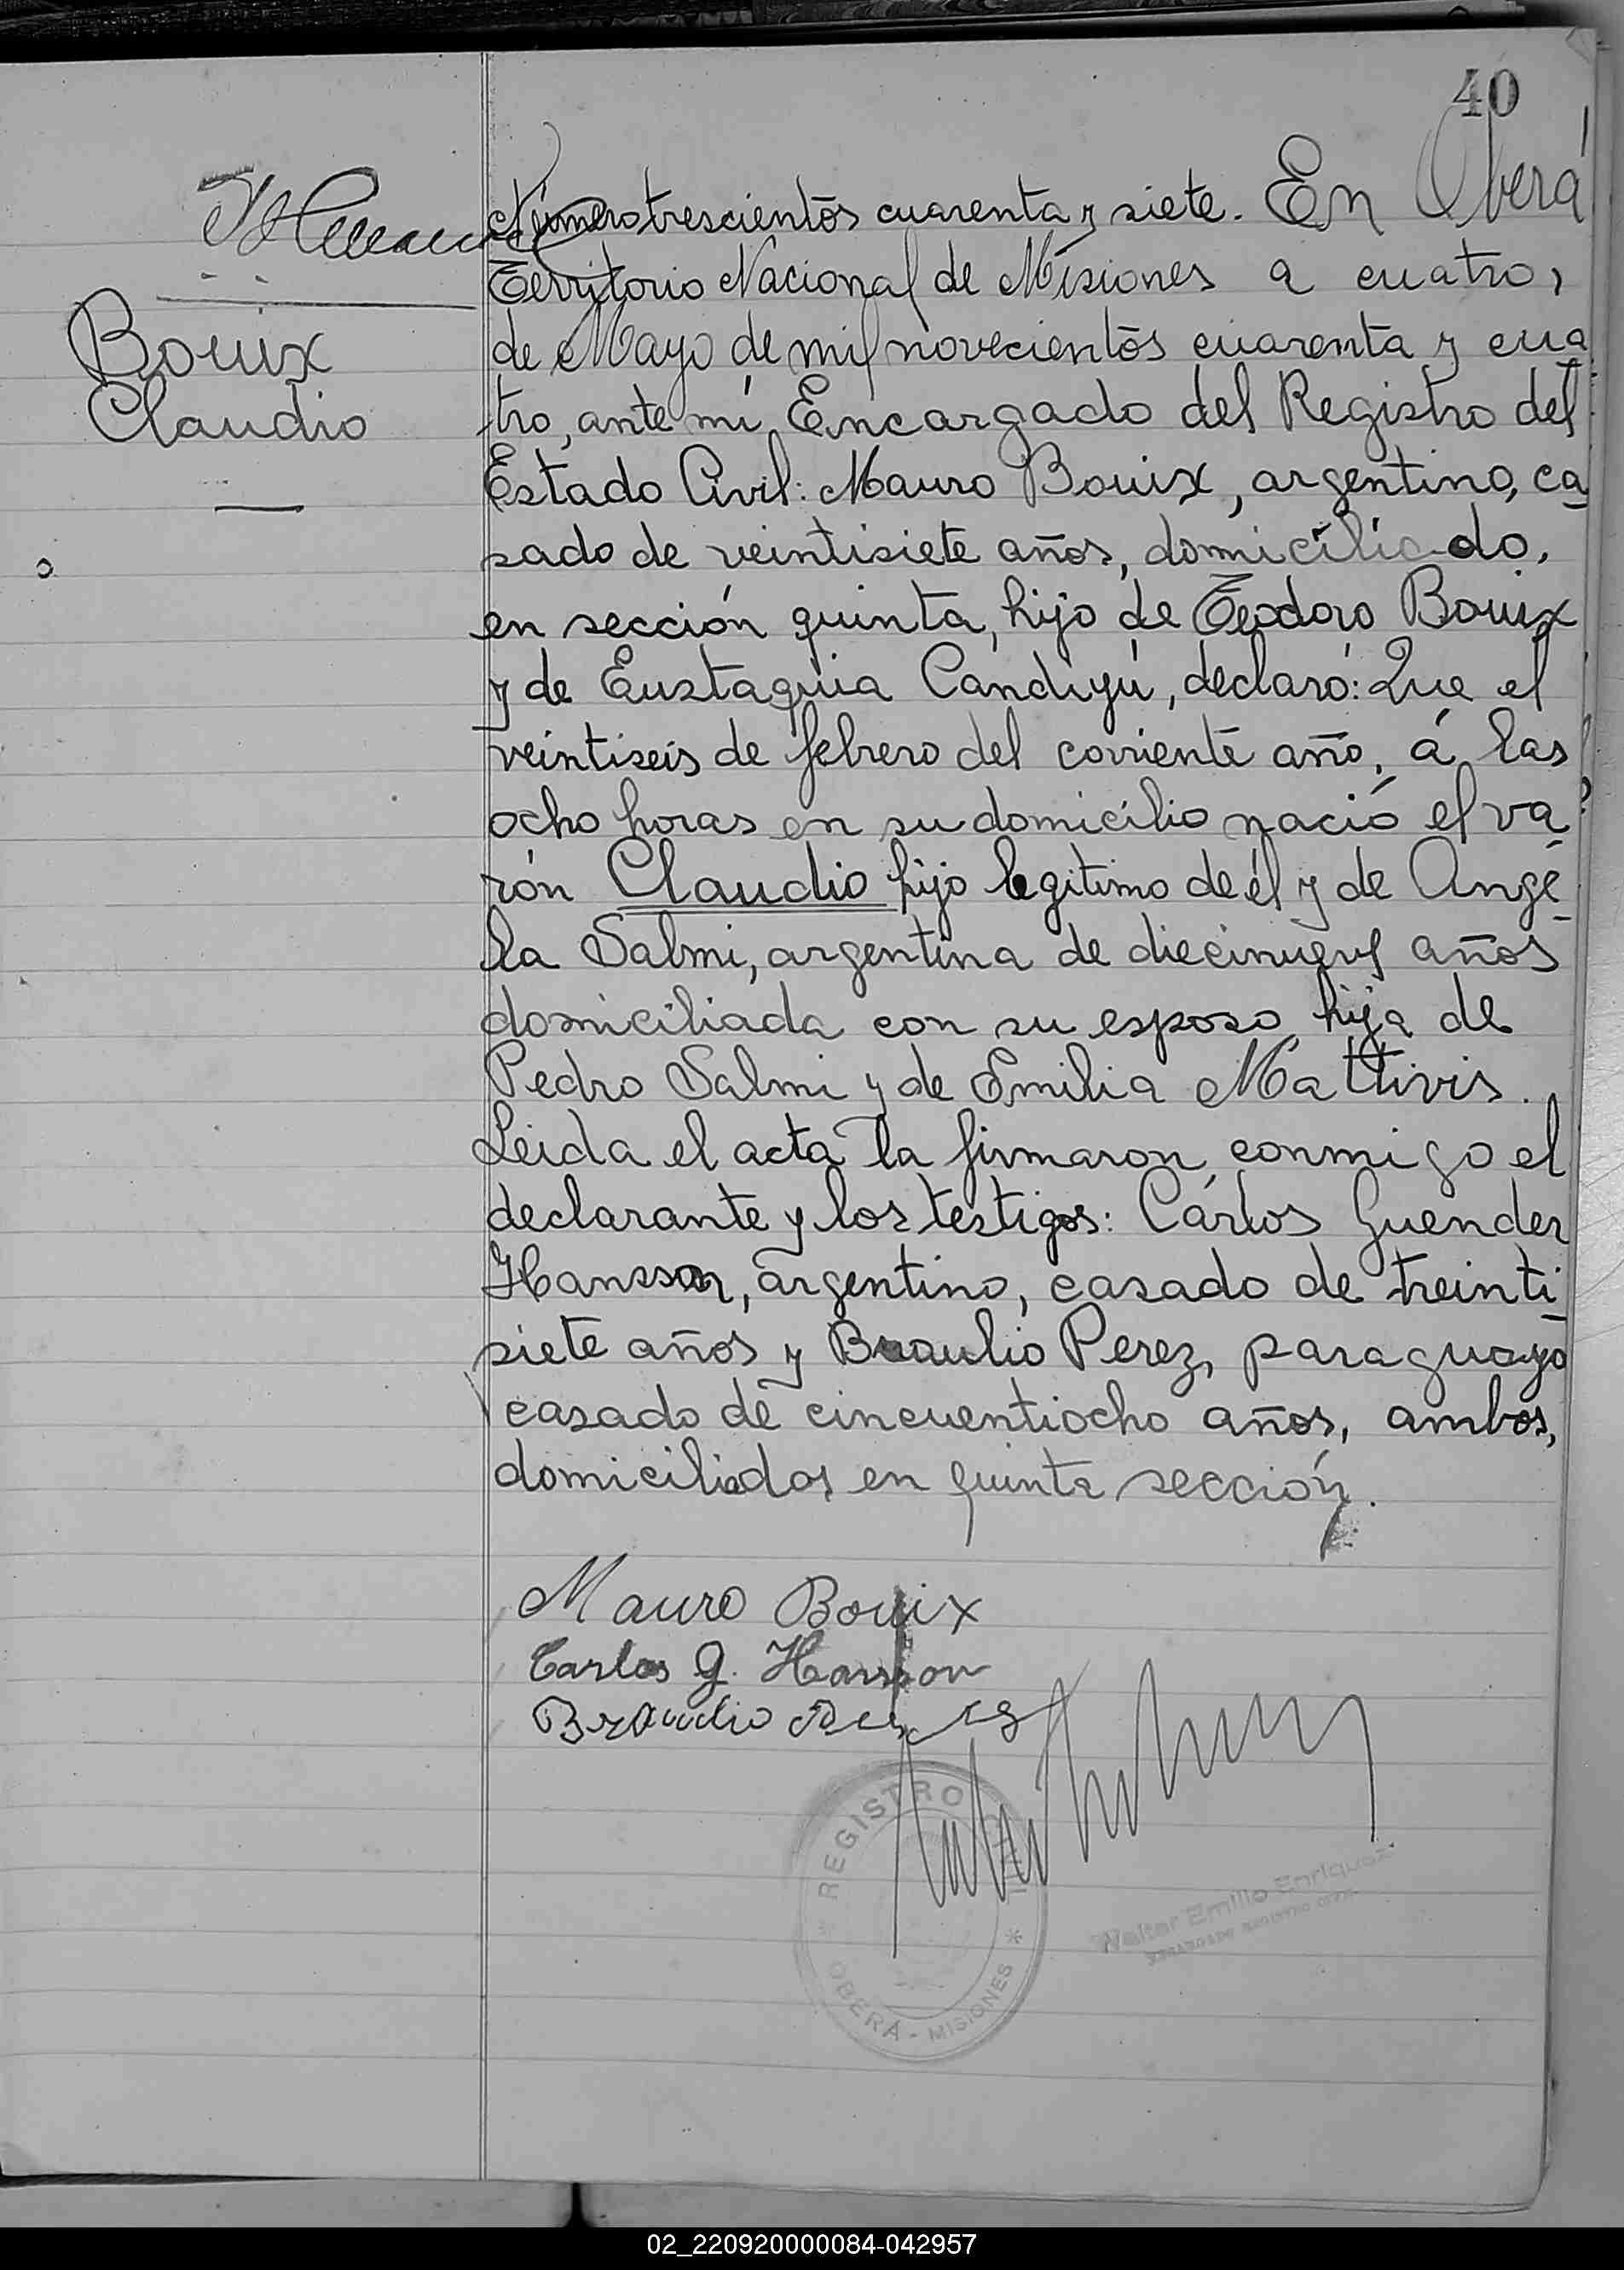 40
Número trescientos cuarenta y siete. En Oberá
Territorio Nacional de Misiones a cuatro,
Bouix
Claudio
de Mayo de mil novecientos cuarenta y cua
tro, ante mí Encargado del Registro del
Estado Civil: Mauro Bouix, argentino, ca
sado de veintisiete años, domiciliado,
en sección quinta, hijo de Teodoro Bouix
y de Eustaquia Candiyú, declaró: Que el
veintiseis de febrero del corriente año, á las
ocho horas en su domicilio nació el va
rón Claudio hijo legitimo de él y de Ange
la Salmi, argentina de diecinueve años
domiciliada con su esposo, hija de
Pedro Salmi y de Emilia Mattivis.
Leida el acta la firmaron conmigo el
declarante y los testigos: Cárlos Guender
Hansson, argentino, casado de treinti
siete años y Braulio Perez, paraguayo
casado de cincuentiocho años, ambos,
domiciliados en quinta sección.
Mauro Bouix
Carlos G. Hansson
Braulio
REGISTRO CIVIL
OBERÁ - MISIONES
Walter Emilio Enriquez
ENCARGADO REGISTRO CIVIL
02_220920000084-042957